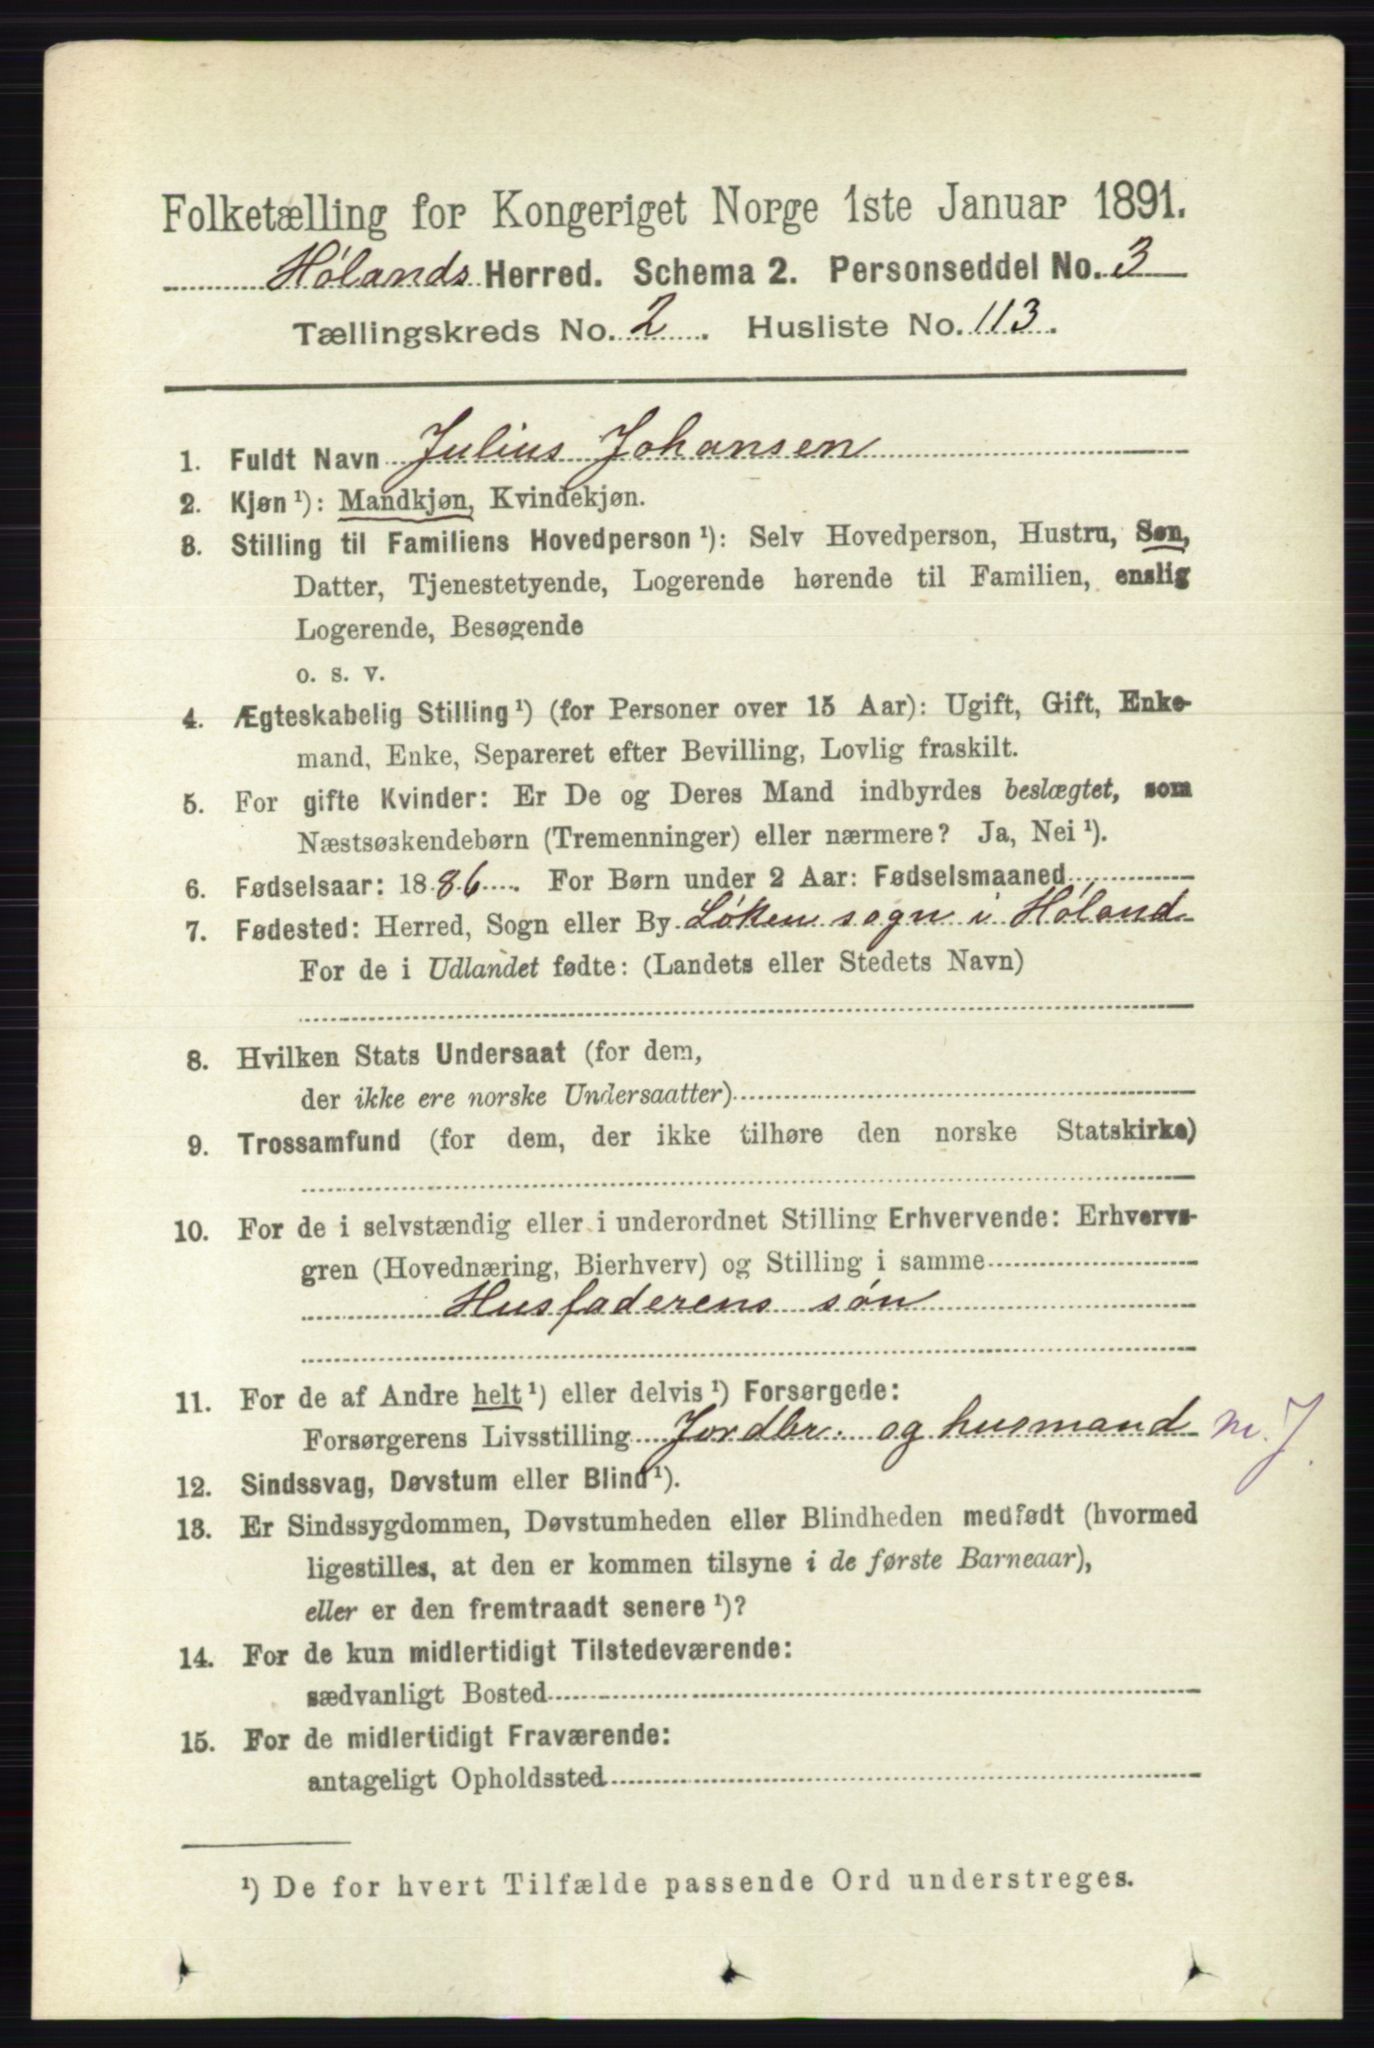 Folketælling for Kongeriget Norge 1ste Januar 1891.
Hølands Herred. Schema 2. Personseddel No. 3
Tællingskreds No. 2. Husliste No. 113.
1. Fuldt Navn Julius Johansen
2. Kjøn¹): Mandkjøn, Kvindekjøn.
3. Stilling til Familiens Hovedperson¹): Selv Hovedperson, Hustru, Søn,
Datter, Tjenestetyende, Logerende hørende til Familien, enslig
Logerende, Besøgende
o. s. v.
4. Ægteskabelig Stilling¹) (for Personer over 15 Aar): Ugift, Gift, Enke-
mand, Enke, Separeret efter Bevilling, Lovlig fraskilt.
5. For gifte Kvinder: Er De og Deres Mand indbyrdes beslægtet, som
Næstsøskendebørn (Tremenninger) eller nærmere? Ja, Nei¹).
6. Fødselsaar: 1886. For Børn under 2 Aar: Fødselsmaaned
7. Fødested: Herred, Sogn eller By Løken sogn i Høland
For de i Udlandet fødte: (Landets eller Stedets Navn)
8. Hvilken Stats Undersaat (for dem,
der ikke ere norske Undersaatter)
9. Trossamfund (for dem, der ikke tilhøre den norske Statskirke)
10. For de i selvstændig eller i underordnet Stilling Erhvervende: Erhvervs-
gren (Hovednæring, Bierhverv) og Stilling i samme
Husfaderens søn
11. For de af Andre helt¹) eller delvis¹) Forsørgede:
Forsørgerens Livsstilling Jordbr. og husmand m. J
12. Sindssvag, Døvstum eller Blind¹).
13. Er Sindssygdommen, Døvstumheden eller Blindheden medfødt (hvormed
ligestilles, at den er kommen tilsyne i de første Barneaar),
eller er den fremtraadt senere¹)?
14. For de kun midlertidigt Tilstedeværende:
sædvanligt Bosted
15. For de midlertidigt Fraværende:
antageligt Opholdssted
¹) De for hvert Tilfælde passende Ord understreges.